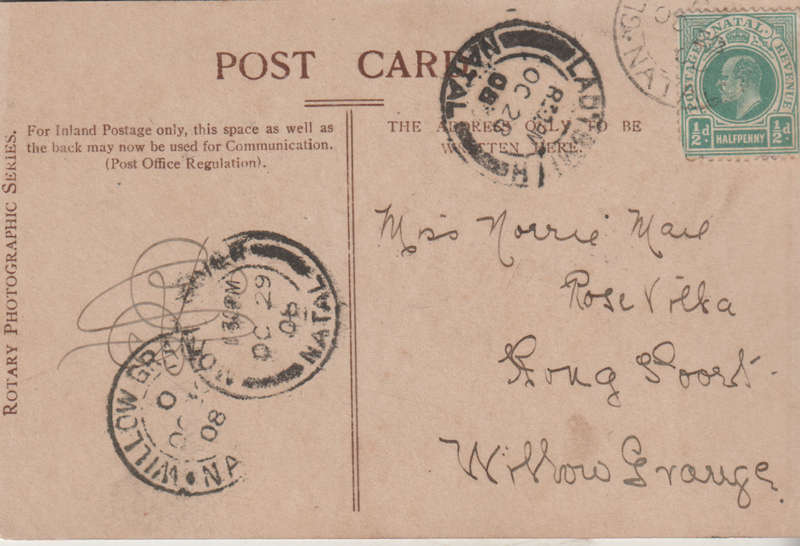 POST CARD
For Inland Postage only, this space as well as
the back may now be used for Communication.
(Post Office Regulation).
THE ADDRESS ONLY TO BE
WRITTEN HERE.
ROTARY PHOTOGRAPHIC SERIES.
POSTAGE NATAL REVENUE
½d. HALFPENNY ½d.
NATAL
LADYSMITH
OC 28
08
NATAL
1 30 PM
OC 29
08
NATAL
WILLOW GR
08
NA
Miss Norrie
Rose Villa
Willow Grange.